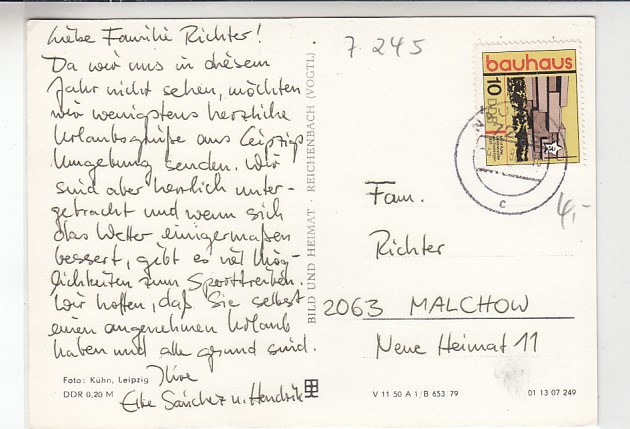 Liebe Familie Richter!
Da wir uns in diesem
Jahr nicht sehen, möchten
wir wenigstens herzliche
Urlaubsgrüße aus Leipzigs
Umgebung senden. Wir
sind aber herrlich unter-
gebracht und wenn sich
das Wetter einigermaßen
bessert, gibt es viel Mög-
lichkeiten zum Sporttreiben.
Wir hoffen, daß Sie selbst
einen angenehmen Urlaub
haben und alle gesund sind.
Ihre
Elke Sánchez u. Hendrik
Foto: Kühn, Leipzig
DDR 0,20 M
BILD UND HEIMAT · REICHENBACH (VOGTL)
7 245
bauhaus
10
DDR
c
4,-
Fam.
Richter
2063 MALCHOW
Neue Heimat 11
V 11 50 A 1/B 653/79
01 13 07 249